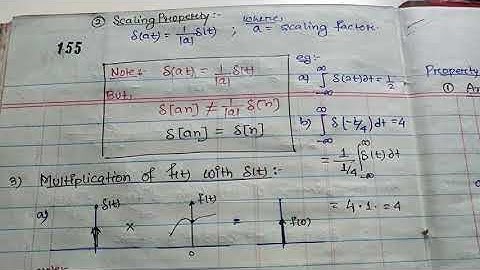 155
② Scaling Property:-
δ(at) = 1/|a| δ(t) ; where, a = scaling factor.
Note:- δ(at) = 1/|a| δ(t)
But,
δ[an] ≠ 1/|a| δ[n]
δ[an] = δ[n]
eg:-
a) ∫_{-∞}^{∞} δ(2t)dt = 1/2
b) ∫_{-∞}^{∞} δ(-t/4)dt = 4
= 1/(1/4) ∫_{-∞}^{∞} δ(t)dt
= 4·1· = 4
3) Multiplication of f(t) with δ(t):-
a) δ(t) × f(t) = f(0)
0
Property
①